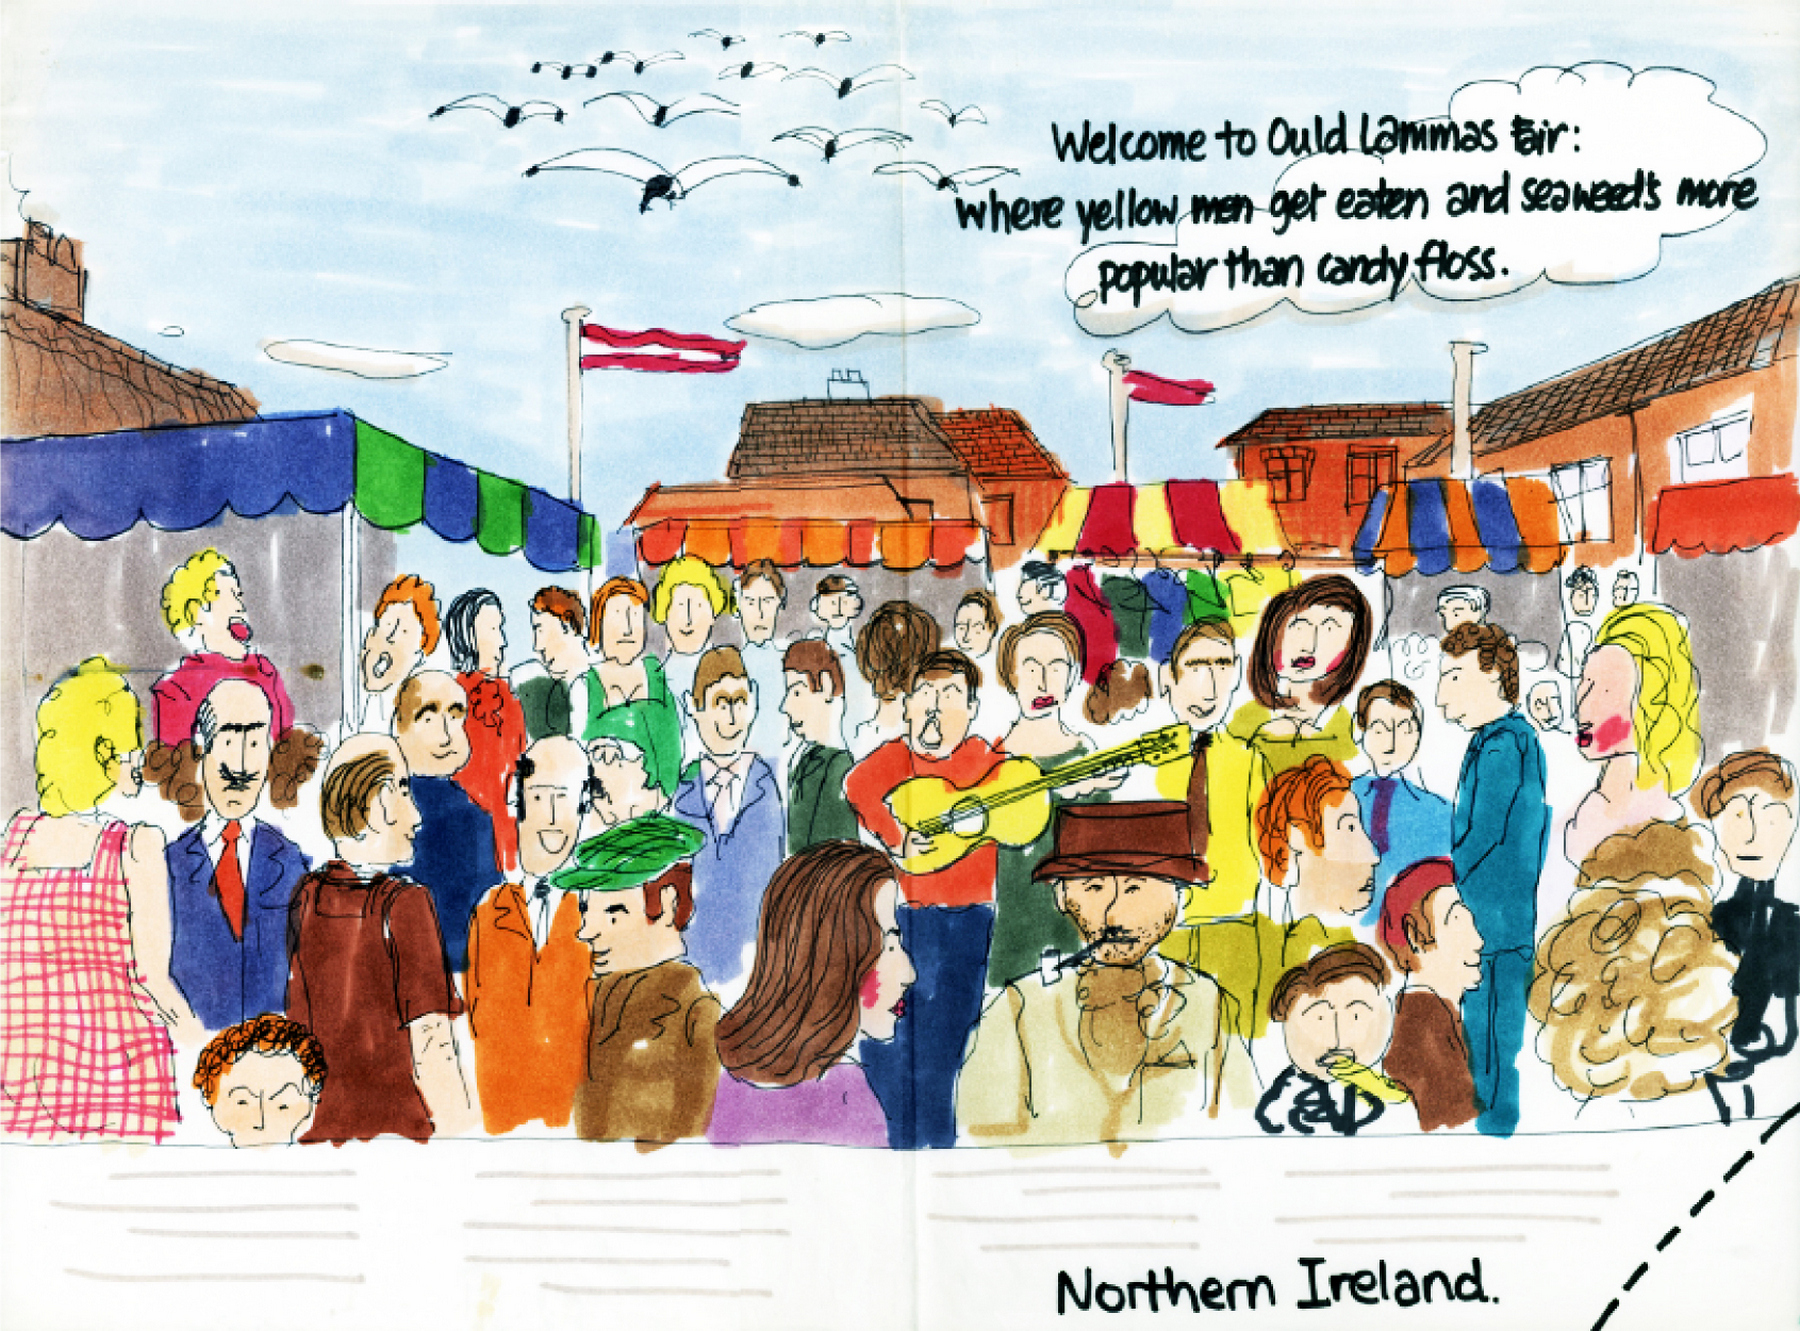 Welcome to Ould Lammas Fair:
where yellow men get eaten and seaweed's more
popular than candy floss.
Northern Ireland.